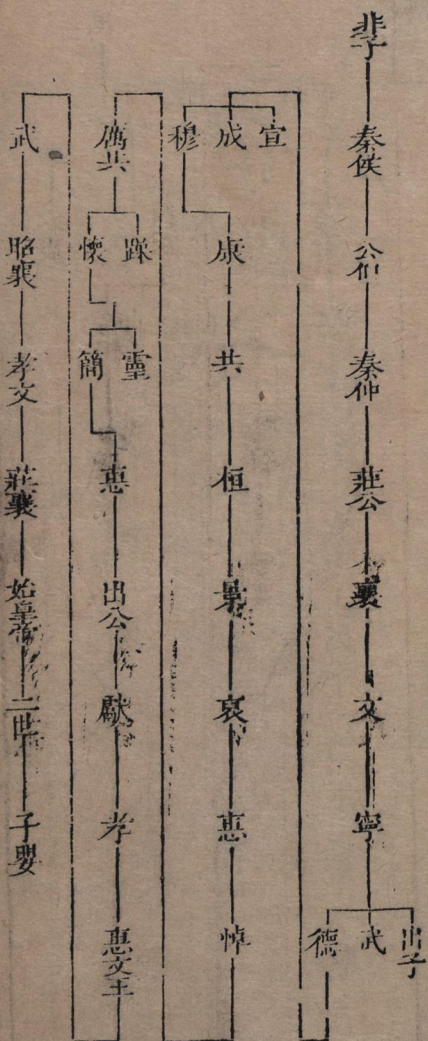 非子 秦侯 公伯 秦仲 莊公 襄 文 寧
出子 武 德
宣 成 穆
康 共 桓 景 哀 惠 悼
厲共
躁 懷
靈 簡
惠 出公 獻 孝 惠文王
武 昭襄 孝文 莊襄 始皇帝 二世 子嬰